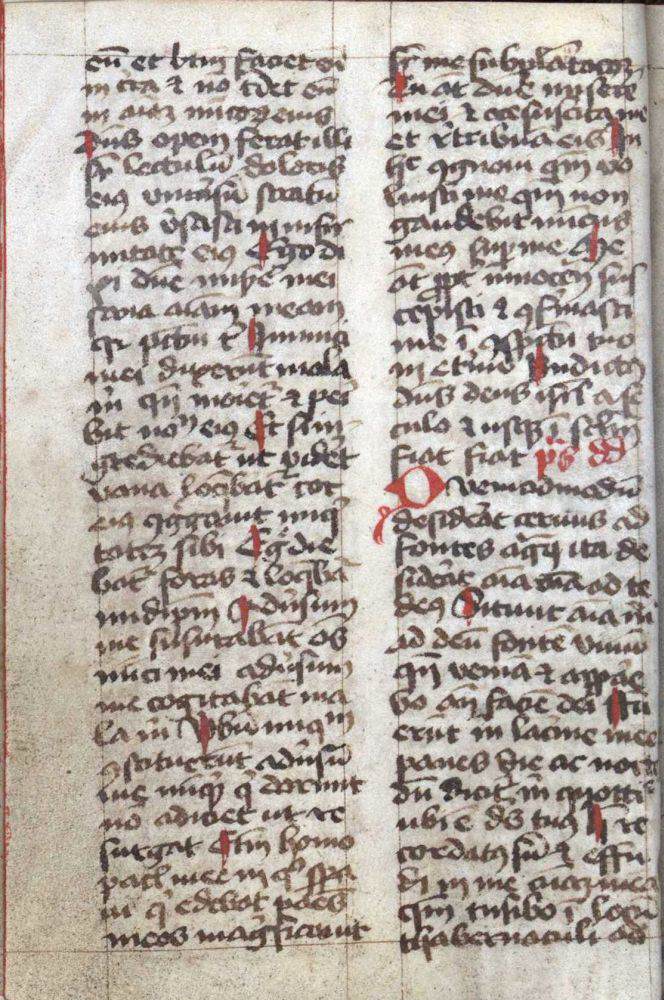 eu̅ et btm̅ faciet eu̅
in tr̅a & no̅ t̅det eu̅
in ai̅az inicoꝝ eius
Dn̅s opem ferat illi
sr̅ lectulu̅ doloris
eiꝰ vniu̅su̅ stratu̅
eius v̅sasti in infir
mitate eiꝰ Ego di
xi dn̅e mise̅ mei
sana ai̅am meam
qr̅ pccu̅i t̅ Inimici
mei dixerunt mala
m̅ qn̅ moriet̅ & peri
bit nom̅ eiꝰ Et si in
grediebat̅ ut vide̅et
vana loq̅bat̅ cor
eiꝰ ꝯg̅gauit iniq̅
tatem sibi Eg̅die
bat̅ foras & loq̅ba̅
in idip̅m Adu̅sum
me susurrabant o̅s
inici mei adu̅sum
me cogitaba̅t ma
la m̅ Vbu̅ iniqm̅
ꝯstituerut adu̅su̅
me nu̅q̅ q̅ dormit
no̅ adiciet ut re
surgat Etm̅ homo
pacꝭ mee in q̅ spa̅
ui q̅ edebat pa̅es
meos mag̅ficauit
sr̅ me subpla̅tac̅oz
Tu at̅ dn̅e misere̅
mei & resuscita me
et r̅tribua̅ eis In
h̅ ꝯgnoui qm̅ vo
luisti me qm̅ non
gaudebit inicus
meꝰ sup̅ me Me
at̅ ꝓpt̅ innocen̅ sus
cepisti & ꝯfirmasti
me i̅ ꝯspc̅tu tuo
in et̅nu̅ Bn̅dictꝰ
dn̅s deus isrl̅ a se
culo & usqꝫ i̅ sclm̅
fiat fiat p̅s dd
Quemadmodu̅
desiderat ceruus ad
fontes aq̅ꝝ ita de
siderat ai̅a mea ad te
deꝰ Sitiuit ai̅a m̅
ad deu̅ fonte̅ viuu̅
qn̅ venia̅ & appare
bo an̅ facie̅ dei Fu
eru̅t m̅ lacri̅e mee
panes die ac nocte
du̅ dicit̅ m̅ quotti̅
ubi e̅ ds̅ tuꝰ H̅ re
cordatꝰ su̅ & effu
di in me ai̅am mea̅
qm̅ tra̅sibo i̅ locu̅
thabernaculi ad